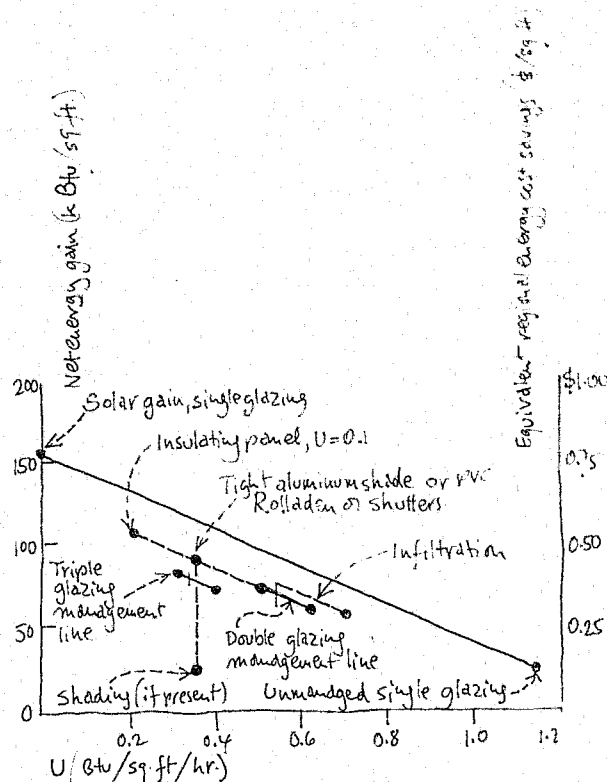 Net energy gain (k Btu/sq.ft.)
Equivalent regional energy cost savings $/sq ft.
200
150
100
50
0
$1.00
0.75
0.50
0.25
Solar gain, single glazing
Insulating panel, U=0.1
Tight aluminum shade or PVC
Rolladen or shutters
Infiltration
Triple
glazing
management
line
Double glazing
management line
Shading (if present)
Unmanaged single glazing
0.2
0.4
0.6
0.8
1.0
1.2
U (Btu/sq.ft/hr.)